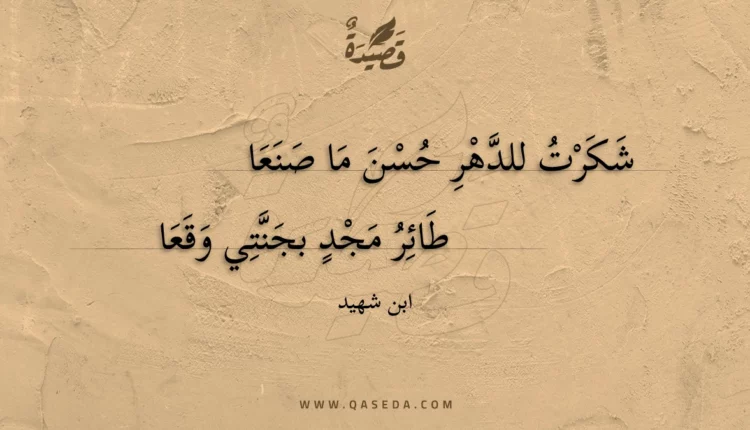 قَصِيدَةٌ
شَكَرْتُ للدَّهْرِ حُسْنَ مَا صَنَعَا
طَائِرُ مَجْدٍ بجَنَّتِي وَقَعَا
ابن شهيد
WWW.QASEDA.COM